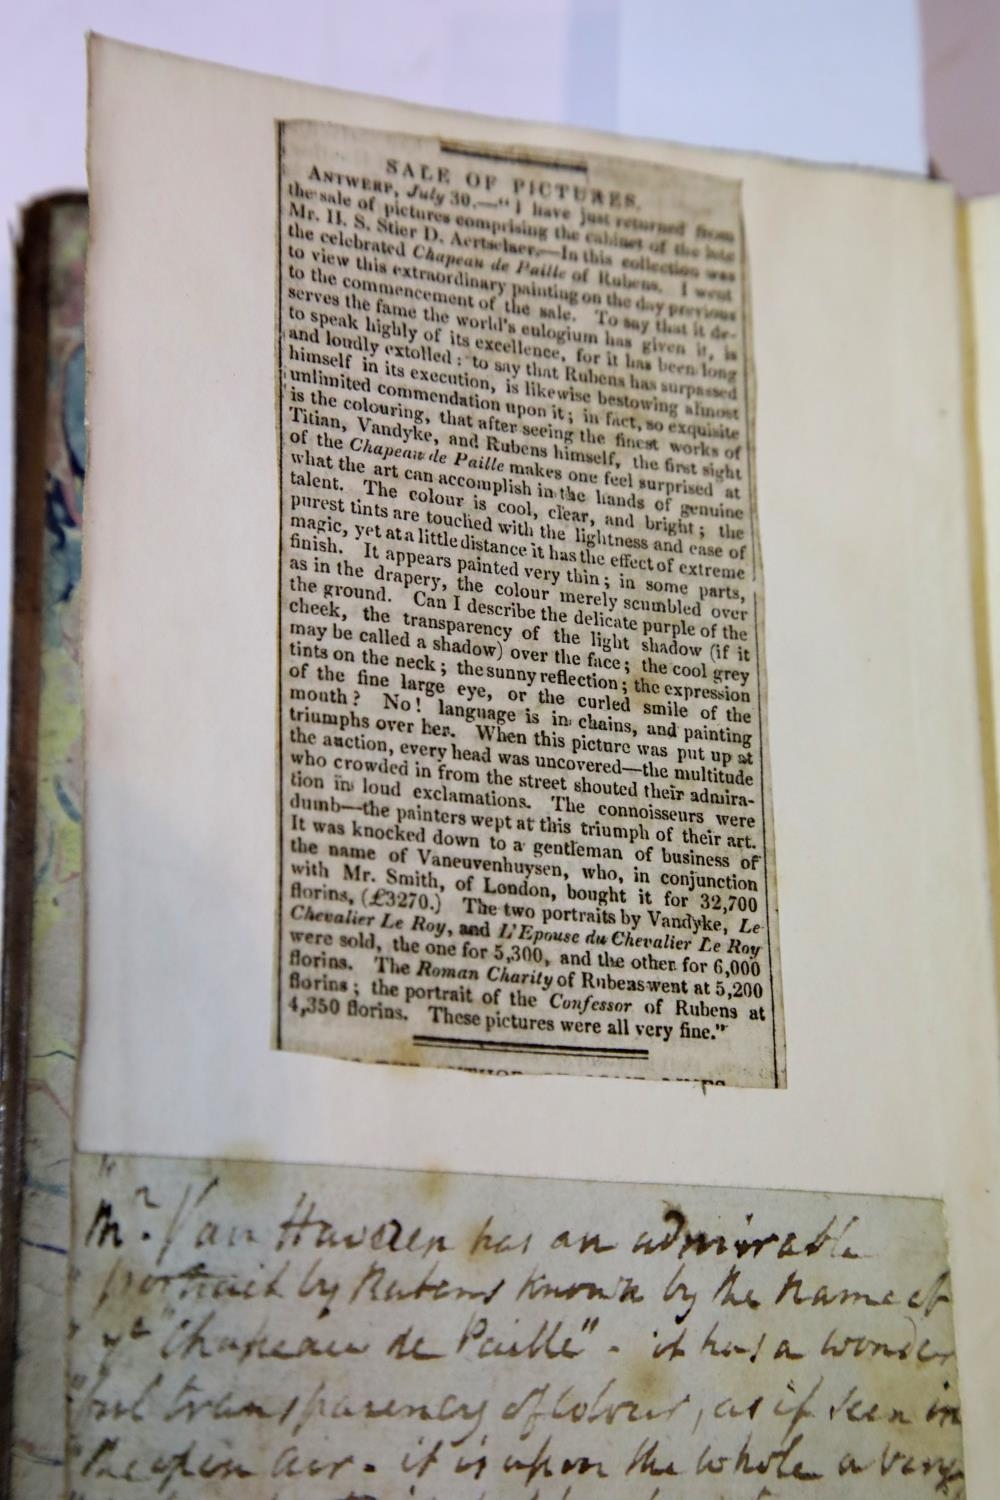 SALE OF PICTURES.
ANTWERP, July 30.—"I have just returned from
the sale of pictures comprising the cabinet of the late
Mr. H. S. Stier D. Aertselaer.—In this collection was
the celebrated Chapeau de Paille of Rubens. I went
to view this extraordinary painting on the day previous
to the commencement of the sale. To say that it de-
serves the fame the world's eulogium has given it, is
to speak highly of its excellence, for it has been long
and loudly extolled; to say that Rubens has surpassed
himself in its execution, is likewise bestowing almost
unlimited commendation upon it; in fact, so exquisite
is the colouring, that after seeing the finest works of
Titian, Vandyke, and Rubens himself, the first sight
of the Chapeau de Paille makes one feel surprised at
what the art can accomplish in the hands of genuine
talent. The colour is cool, clear, and bright; the
purest tints are touched with the lightness and ease of
magic, yet at a little distance it has the effect of extreme
finish. It appears painted very thin; in some parts,
as in the drapery, the colour merely scumbled over
the ground. Can I describe the delicate purple of the
cheek, the transparency of the light shadow (if it
may be called a shadow) over the face; the cool grey
tints on the neck; the sunny reflection; the expression
of the fine large eye, or the curled smile of the
mouth? No! language is in chains, and painting
triumphs over her. When this picture was put up at
the auction, every head was uncovered—the multitude
who crowded in from the street shouted their admira-
tion in loud exclamations. The connoisseurs were
dumb—the painters wept at this triumph of their art.
It was knocked down to a gentleman of business of
the name of Vaneuvenhuysen, who, in conjunction
with Mr. Smith, of London, bought it for 32,700
florins, (£3270.) The two portraits by Vandyke, Le
Chevalier Le Roy, and L'Epouse du Chevalier Le Roy
were sold, the one for 5,300, and the other for 6,000
florins. The Roman Charity of Rubens went at 5,200
florins; the portrait of the Confessor of Rubens at
4,350 florins. These pictures were all very fine."
"Mr. Van Havren has an admirable
portrait by Rubens known by the name of
ye "Chapeau de Paille" - it has a wonder
"ful transparency of colour, as if seen in
"the open air - it is upon the whole a very